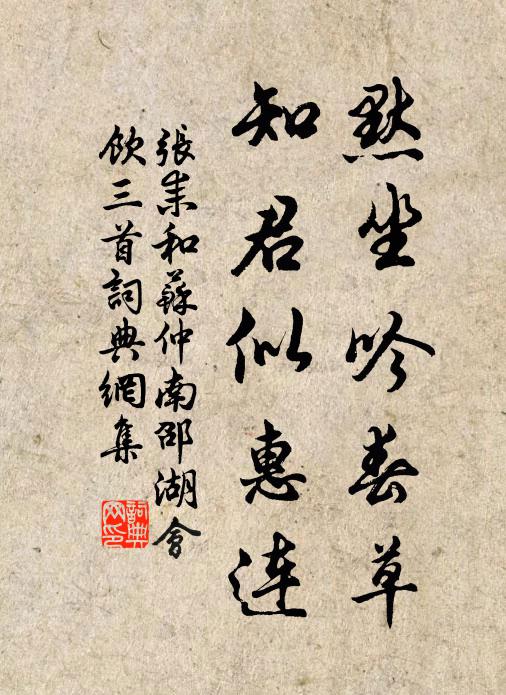 默坐吟春草
知君似惠連
張耒和蘇仲南邵湖會
飲三首詞典網集
詞典
網印